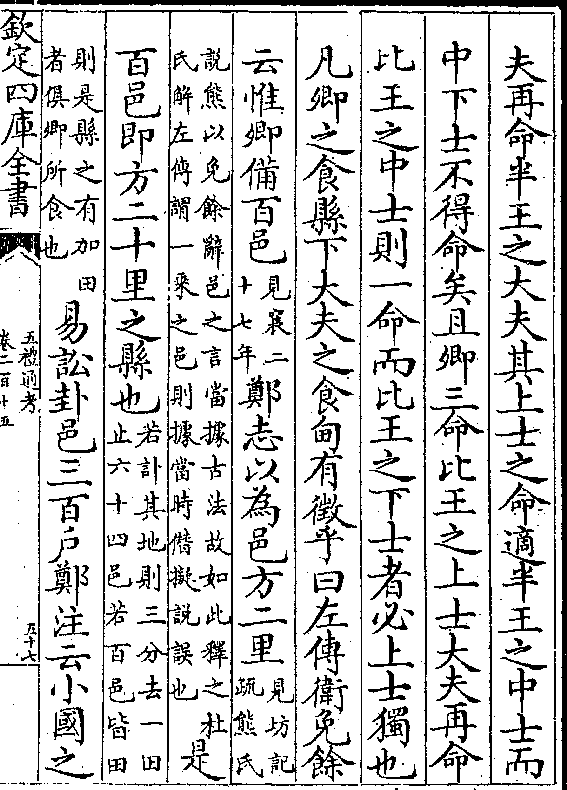 夫再命半王之大夫其上士之命適半王之中士而
中下士不得命矣且卿三命比王之上士大夫再命
比王之中士則一命而比王之下士者必上士獨也
凡卿之食縣下大夫之食甸有徵乎曰左傳衛免餘
云惟卿備百邑見襄二十七年鄭志以為邑方二里見坊記疏熊氏
說熊以免餘辭邑之言當據古法故如此釋之杜氏解左傳謂一乘之邑則據當時僭擬說誤也是
百邑即方二十里之縣也若計其地則三分去一田止六十四邑若百邑皆田
則是縣之有加田者俱卿所食也易訟卦邑三百戶鄭注云小國之
欽定四庫全書
五禮通考
卷二百十五
五十七